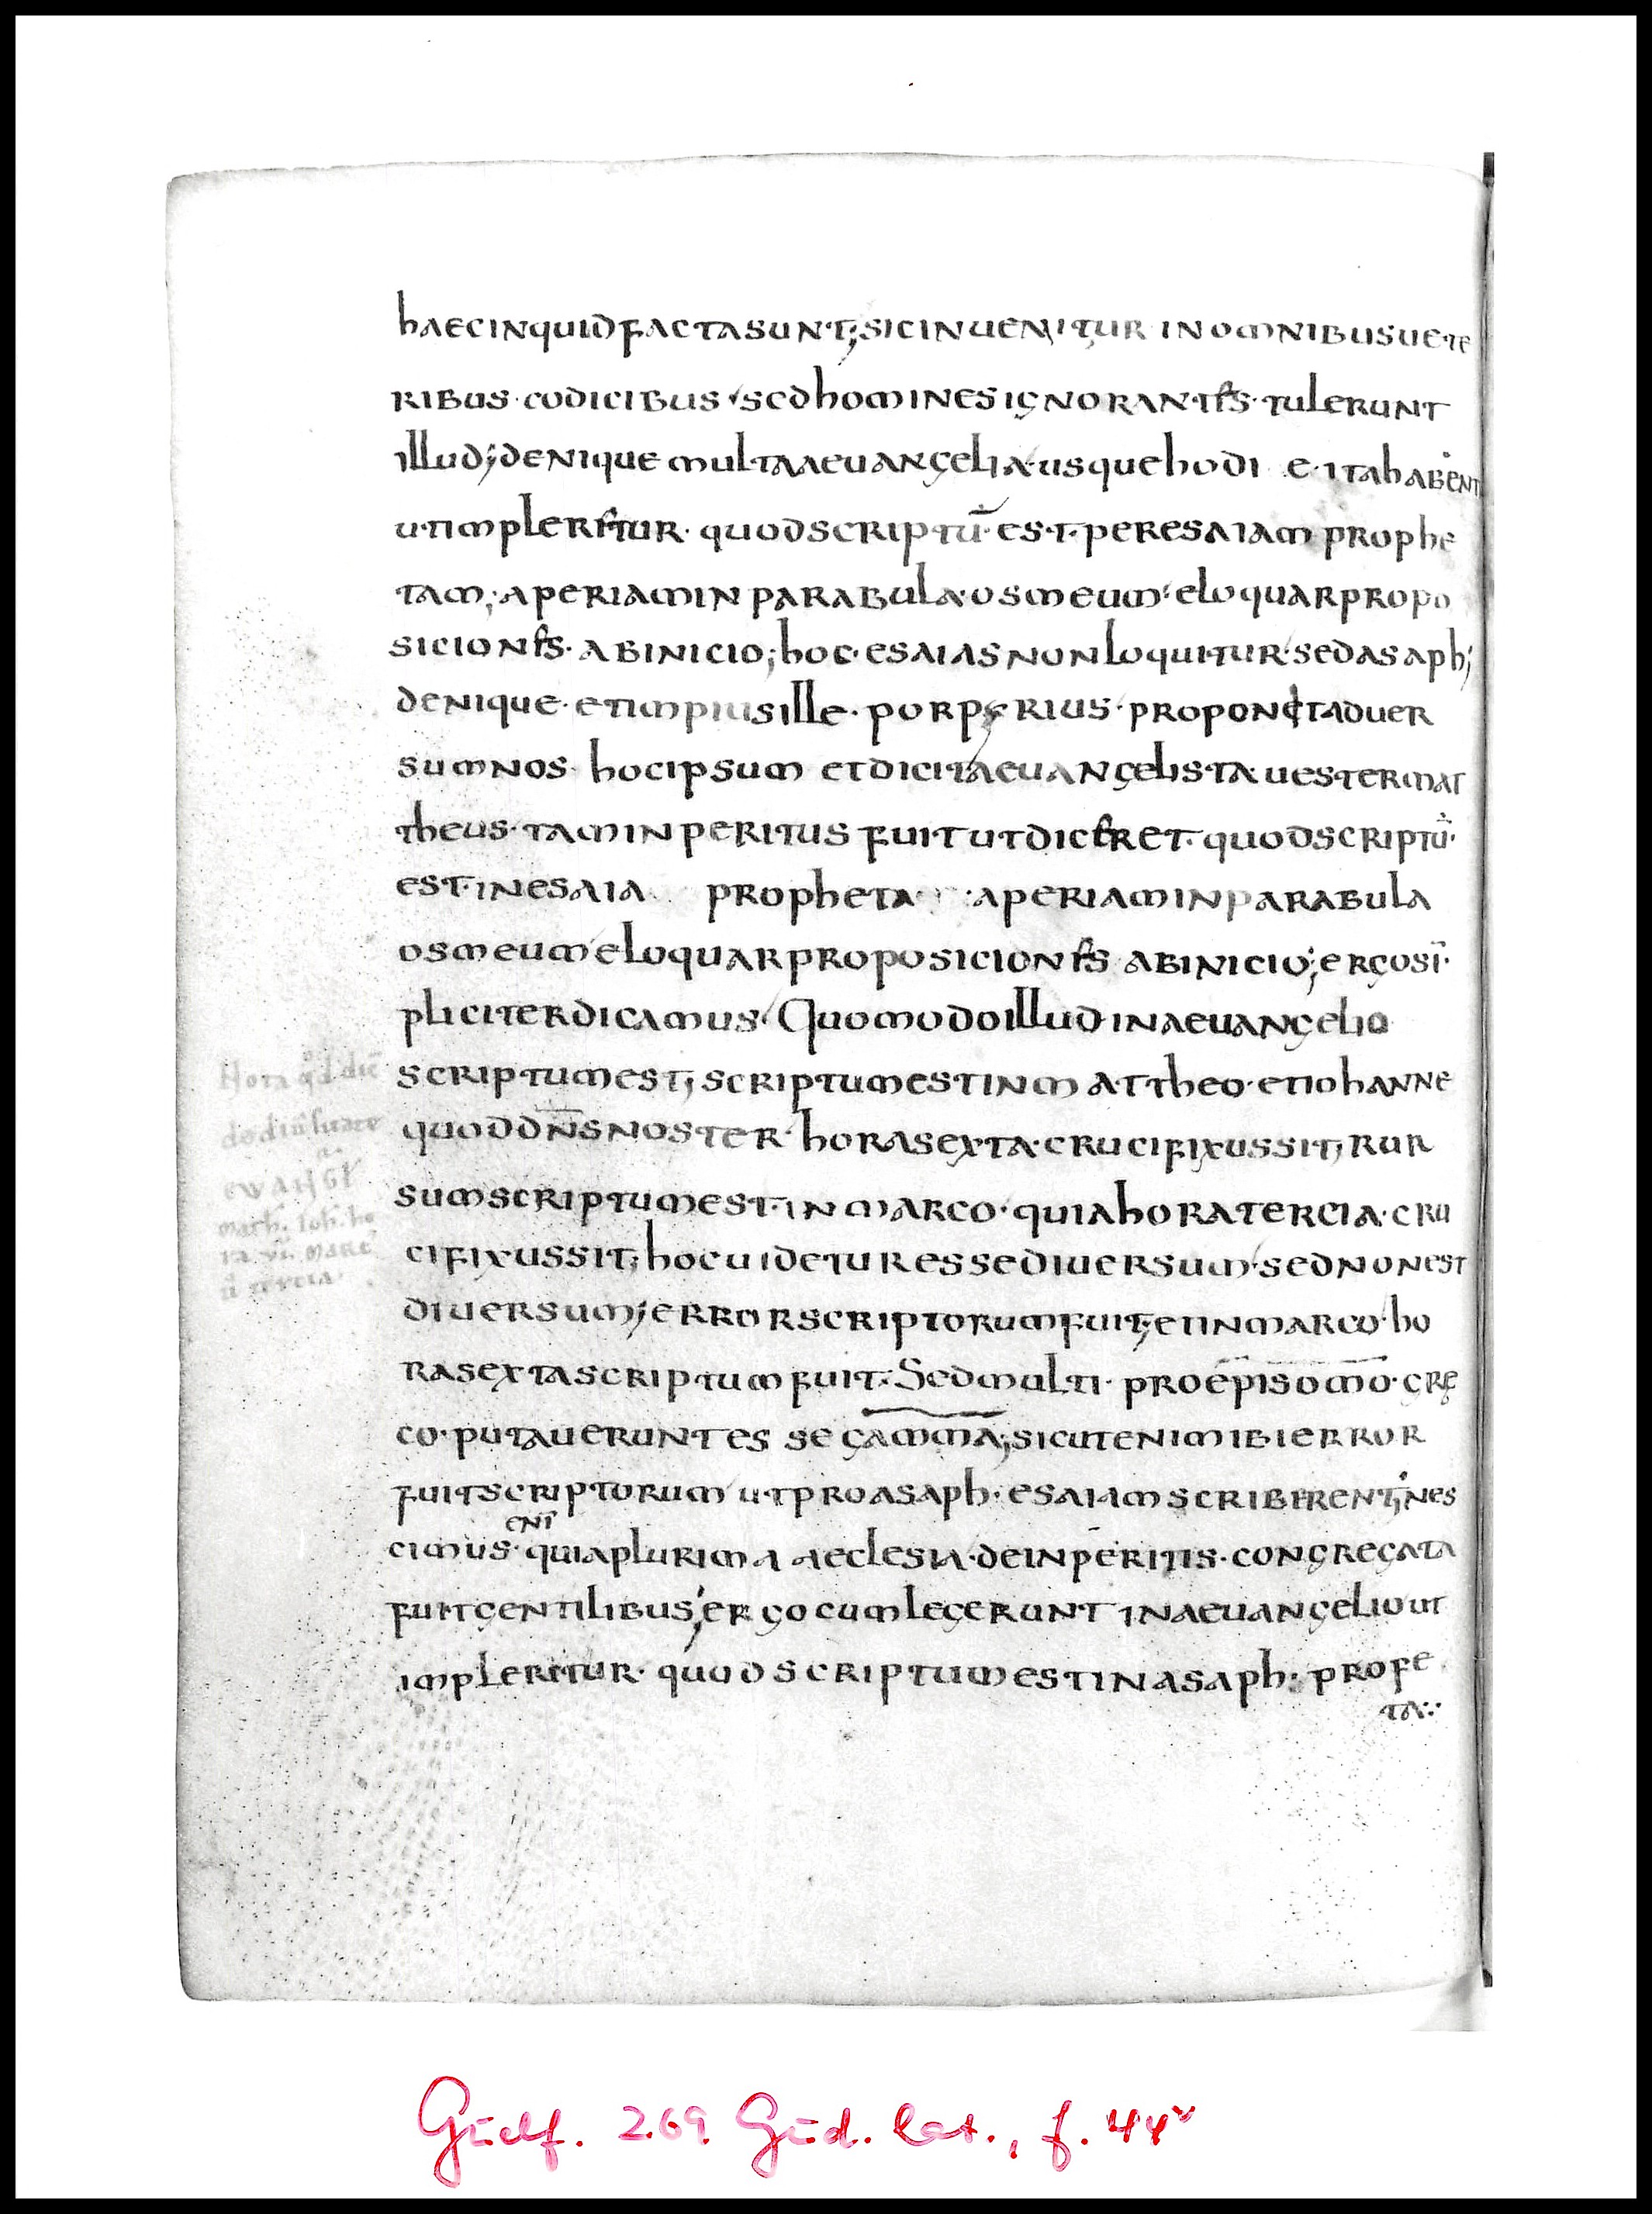 haecinquid factasunt; sicinuenitur inomnibusuete
ribus · codicibus sedhomines ignorantes · tulerunt
illud; denique multaaeuangelia · usquehodi e · itahabent
utimpleretur · quodscriptū · est · peresaiam prophe
tam; aperiamin parabula · osmeum eloquarpropo
siciones · abinicio; hoc · esaiasnonloquitur sedasaph;
denique · etimpiusille · porpyrius · proponitaduer
sumnos · hocipsum etdicitaeuangelista · uestermat
theus · taminperitus fuitutdiceret · quodscriptū ·
est · inesaia propheta · aperiaminparabula
osmeum eloquarproposiciones abinicio; ergosī ·
pliciterdicamus Quomodoillud inaeuangelio
scriptumest; scriptumestinmattheo · etiohanne
quoddn̄snoster · horasexta · crucifixussit; rur
sumscriptumest · inmarco · quiahoratercia · cru
cifixussit; hocuideturessediuersum · sednonest
diuersum; errorscriptorumfuit; etinmarco · ho
rasextascriptumfuit · Sedmulti · proēpisōmō · gre
co · putaueruntes se gam̄ma; sicutenimibierror
fuitscriptorum utproasaph · esaiamscriberent; nes
enī
cimus · quiaplurima aeclesia · deinperitis · congregata
fuitgentilibus; ergocumlegerunt inaeuangelio ut
impleretur · quodscriptumestinasaph · profe
ta
Hora qd dic̄
ewangl
math̄. Ioh̄. ho
ra vi. marc̄
ū tercia
Guelf. 269 Gud. lat., f. 44v